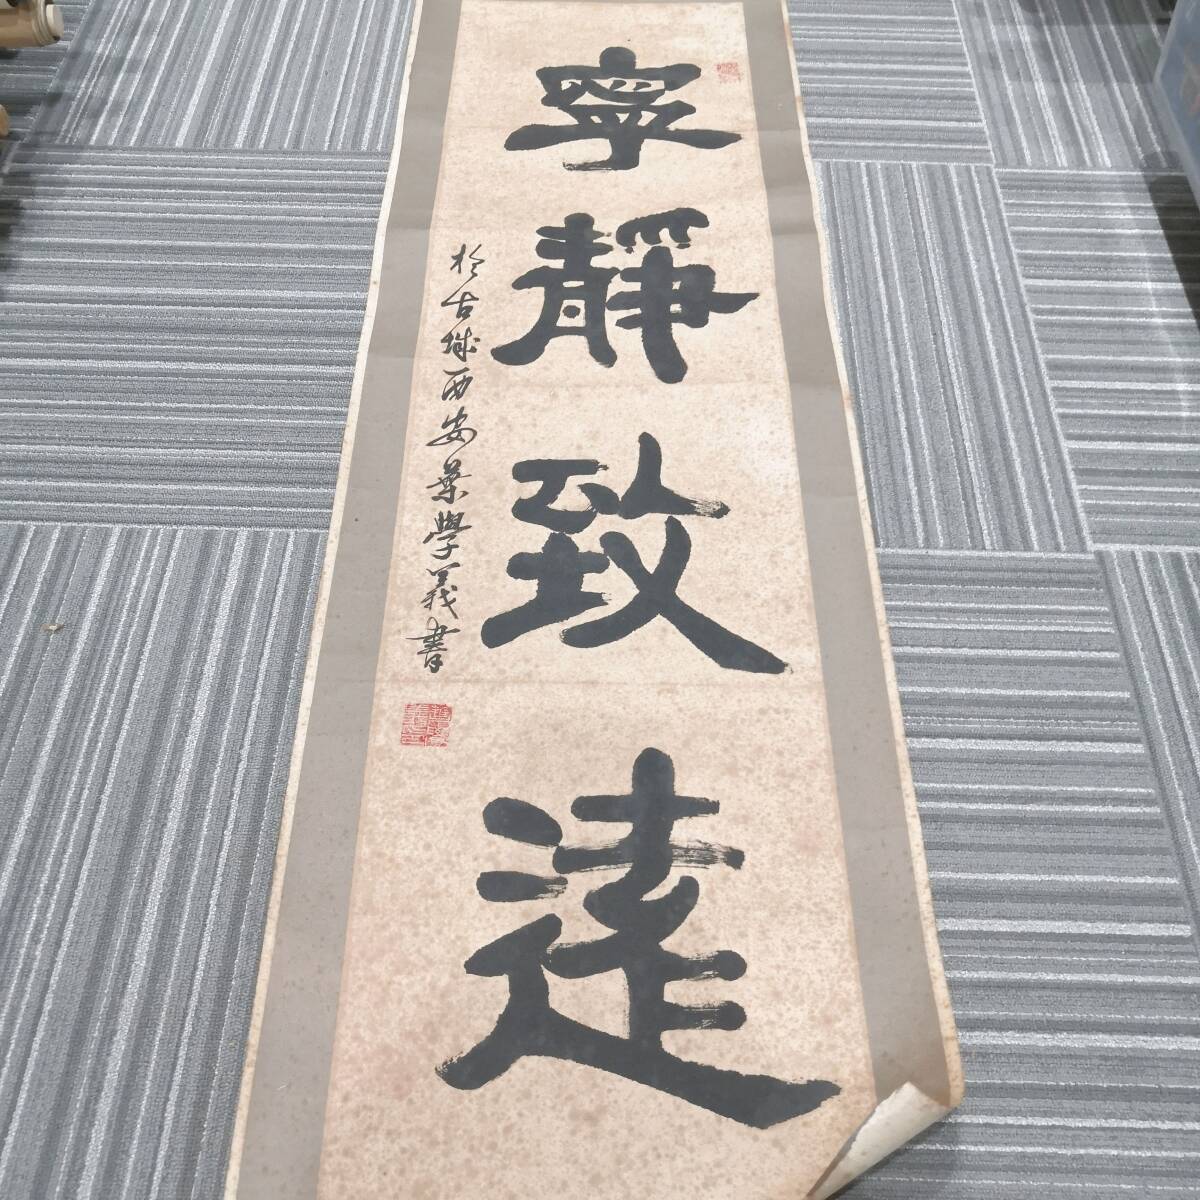 寧靜致遠
於古城西安葉學義書